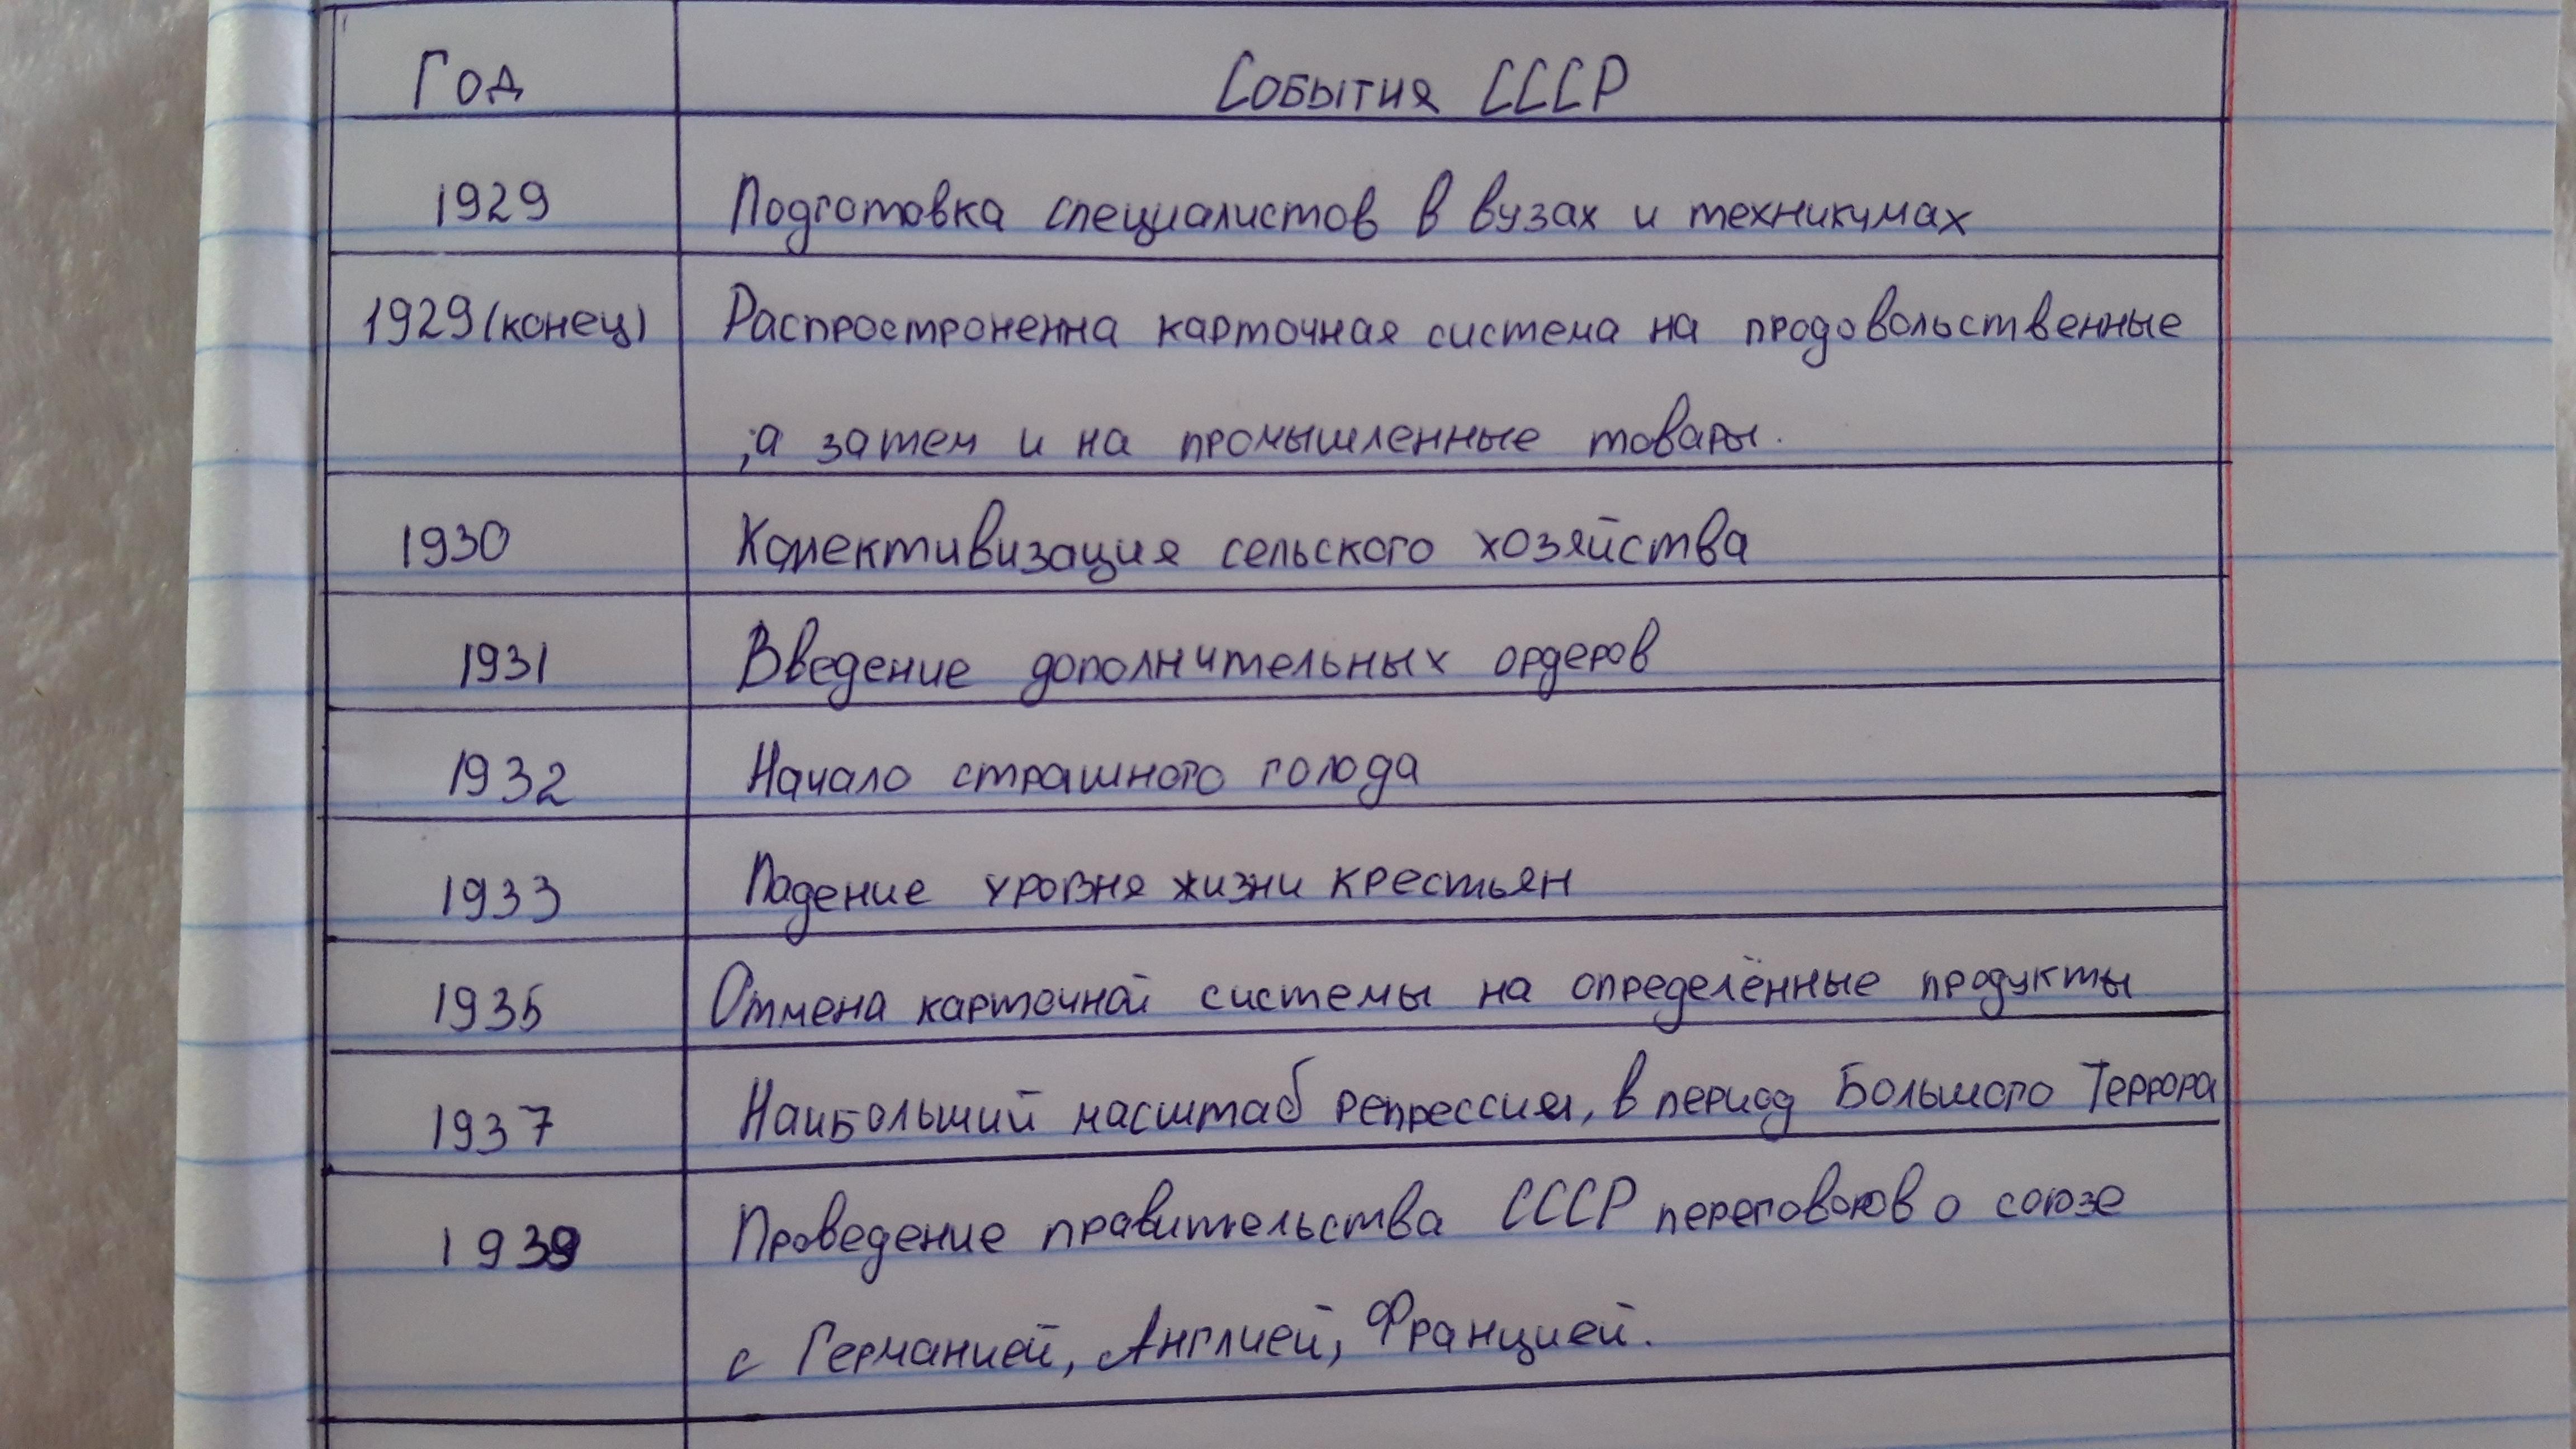 Год События СССР
1929 Подготовка специалистов в вузах и техникумах
1929 (конец) Распростроненна карточная система на продовольственные
,а затем и на промышленные товары.
1930 Колективизация сельского хозяйства
1931 Введение дополнительных ордеров
1932 Начало страшного голода
1933 Падение уровня жизни крестьян
1935 Отмена карточной системы на определённые продукты
1937 Наибольший масштаб репрессии, в период Большого Террора
1939 Проведение правительства СССР переговоров о союзе
с Германией, Англией, Францией.